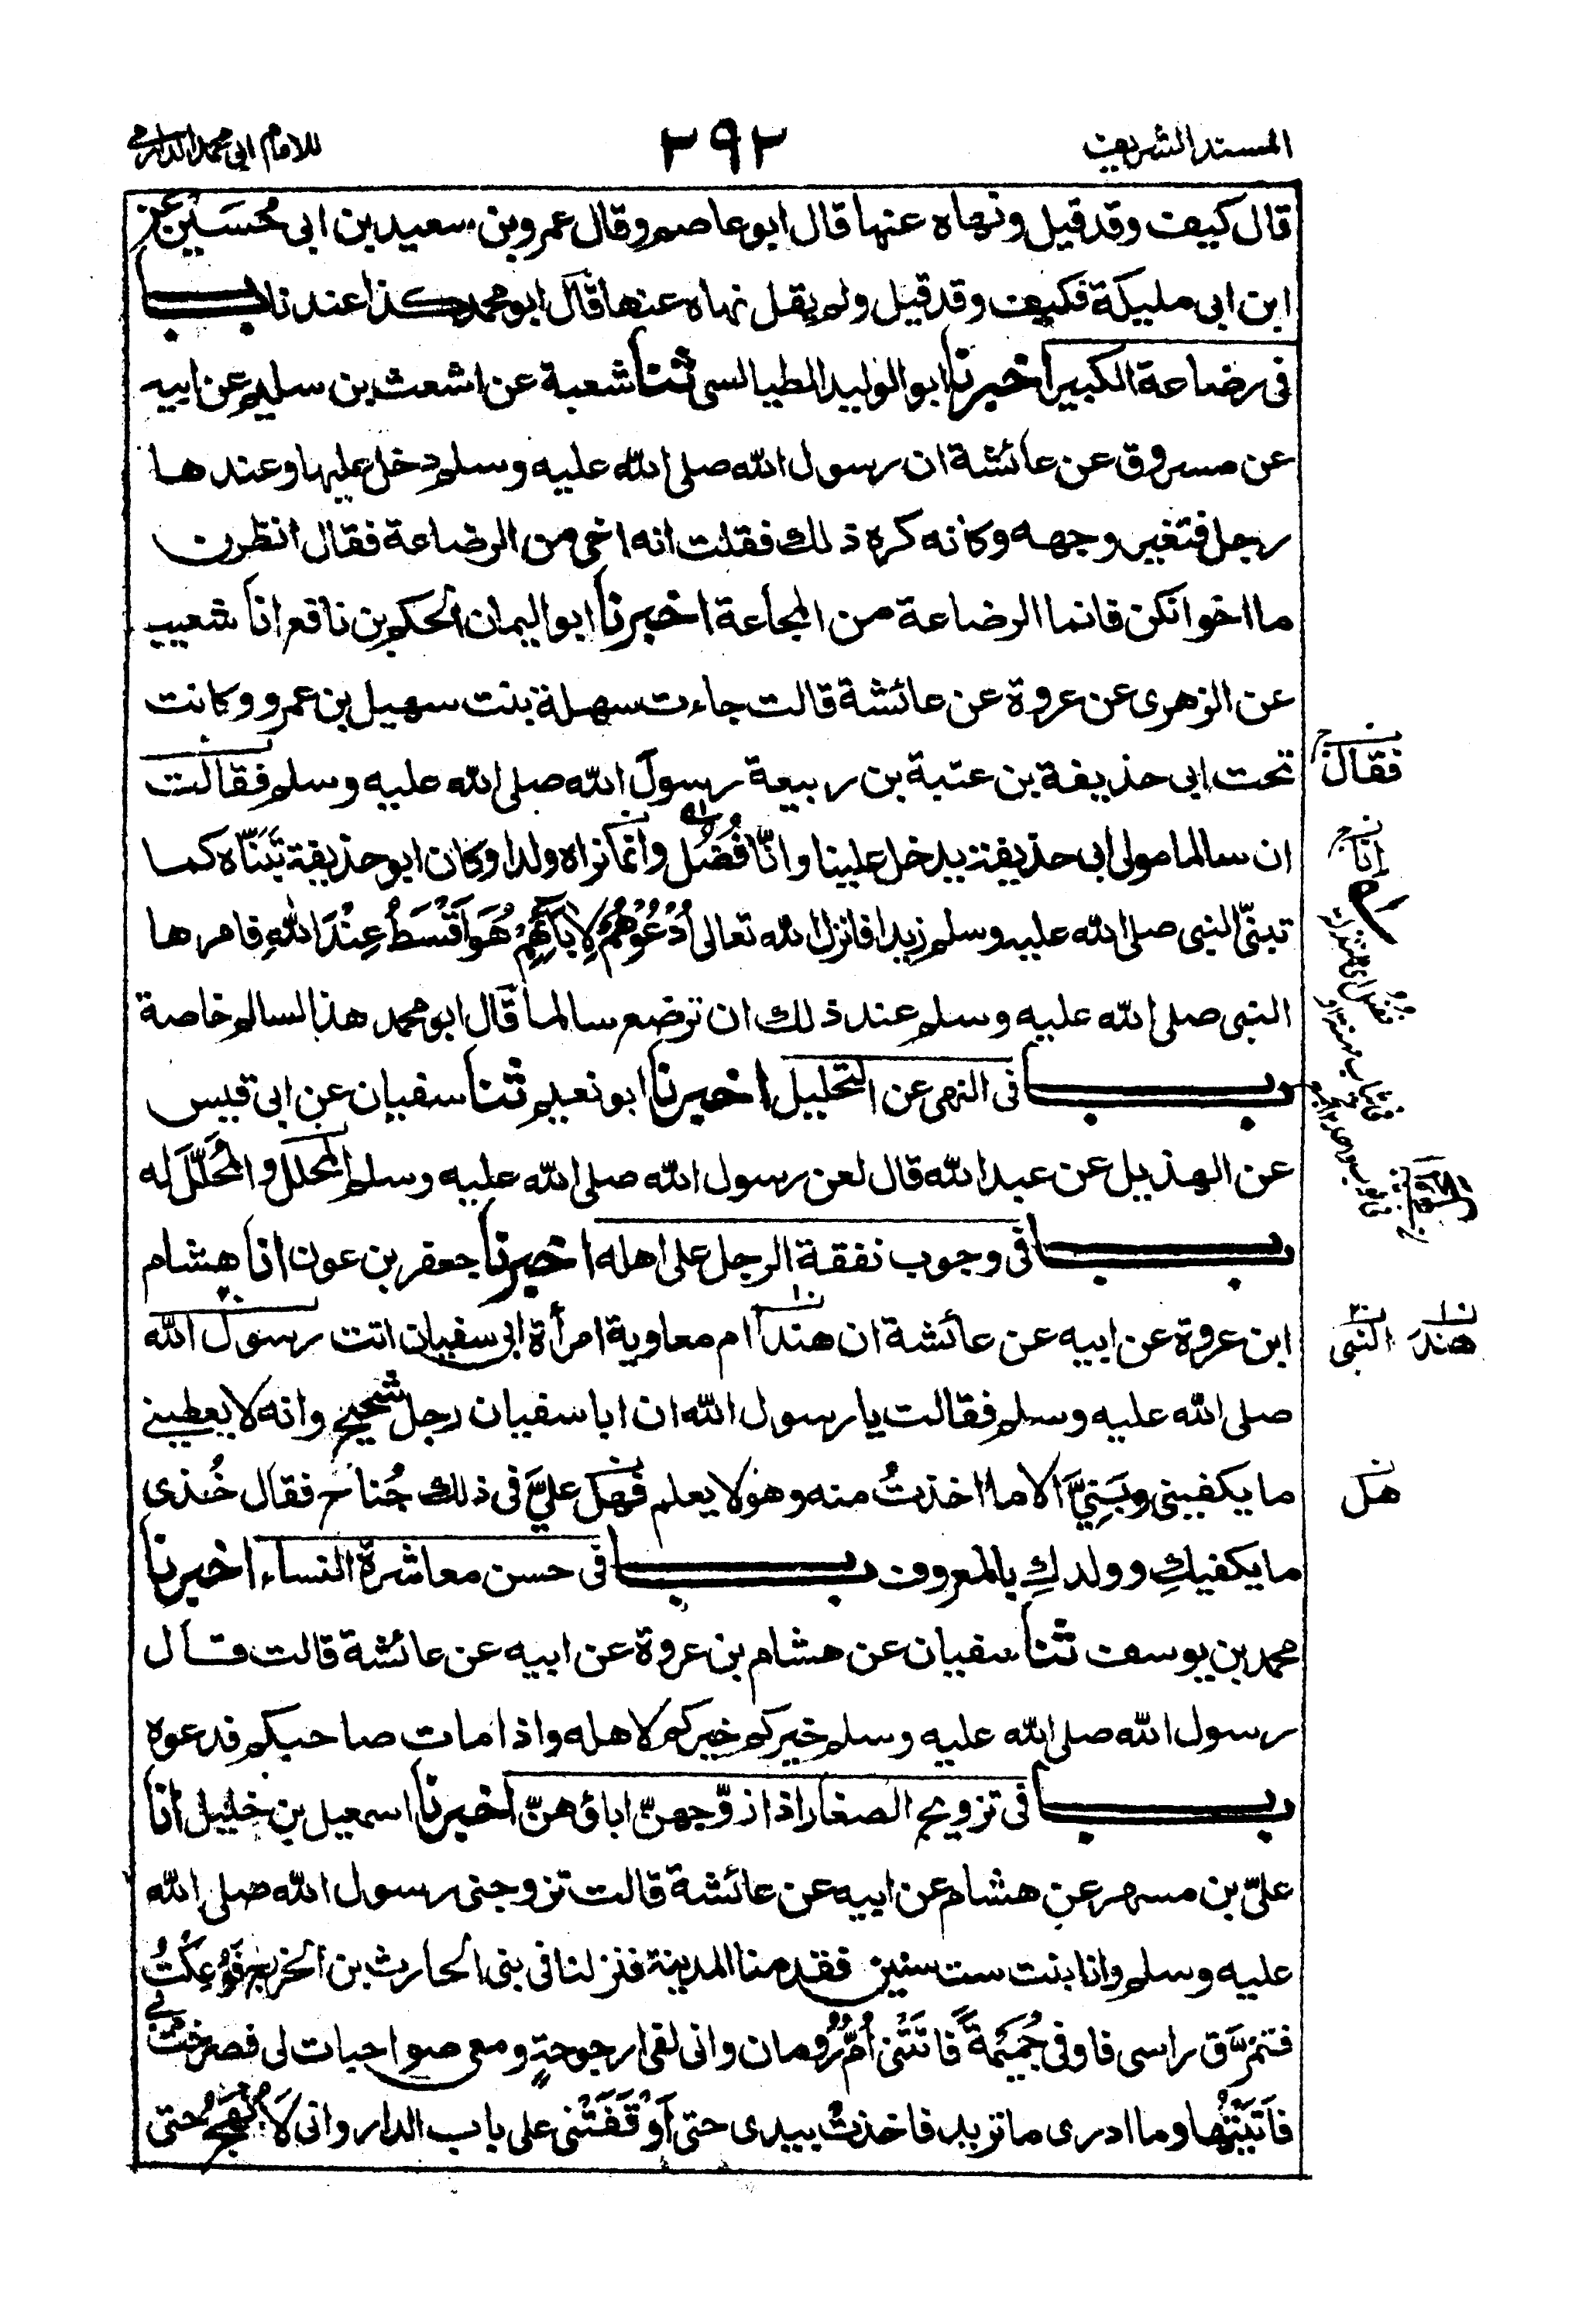 المسند الشريف ٢٩٢ للامام ابي محمد الدارمي
قال كيف وقد قيل ونهاه عنها قال ابو عاصم وقال عمرو بن سعيد بن ابى محسين عن
ابن ابى مليكة فكيف وقد قيل ولم يقل نهاه عنها قال ابو محمد كذا عندنا باب
فى رضاعة الكبير اخبرنا ابو الوليد الطيالسى ثنا شعبة عن اشعث بن سليم عن ابيه
عن مسروق عن عائشة ان رسول الله صلى الله عليه وسلم دخل عليها وعندها
رجل فتغير وجهه وكانه كره ذلك فقلت انه اخى من الرضاعة فقال انظرن
ما اخوانكن فانما الرضاعة من المجاعة اخبرنا ابو اليمان الحكم بن نافع انا شعيب
عن الزهرى عن عروة عن عائشة قالت جاءت سهلة بنت سهيل بن عمرو وكانت
تحت ابى حذيفة بن عتبة بن ربيعة رسول الله صلى الله عليه وسلم فقالت
فقال
ان سالما مولى ابى حذيفة يدخل علينا وانّا فُضُل وانما نراه ولدا وكان ابو حذيفة تَبَنّاه كما
انا
تبنّى النبى صلى الله عليه وسلم زيدا فانزل الله تعالى اُدْعُوْهُمْ لِاٰبَآئِهِمْ هُوَ اَقْسَطُ عِنْدَ اللهِ فامرها
النبى صلى الله عليه وسلم عند ذلك ان ترضع سالما قال ابو محمد هذا لسالم خاصة
باب فى النهى عن التحليل اخبرنا ابو نعيم ثنا سفيان عن ابى قيس
عن الهذيل عن عبد الله قال لعن رسول الله صلى الله عليه وسلم المحلل والمُحَلَّلَ له
باب فى وجوب نفقة الرجل على اهله اخبرنا جعفر بن عون انا هشام
ابن عروة عن ابيه عن عائشة ان هندا ام معاوية امرأة ابى سفيان اتت رسول الله
هند النبى
صلى الله عليه وسلم فقالت يا رسول الله ان ابا سفيان رجل شحيح وانه لا يعطينى
ما يكفينى وبَنِيَّ الا ما اخذتُ منه وهو لا يعلم فهل عليَّ فى ذلك جُناح فقال خُذى
هل
ما يكفيكِ وولدكِ بالمعروف باب فى حسن معاشرة النساء اخبرنا
محمد بن يوسف ثنا سفيان عن هشام بن عروة عن ابيه عن عائشة قالت قال
رسول الله صلى الله عليه وسلم خيركم خيركم لاهله واذا مات صاحبكم فدعوه
باب فى تزويج الصغار اذا زوّجهنّ اباؤهنّ اخبرنا اسمعيل بن خليل انا
علىّ بن مسهر عن هشام عن ابيه عن عائشة قالت تزوجنى رسول الله صلى الله
عليه وسلم وانا بنت ست سنين فقدمنا المدينة فنزلنا فى بنى الحارث بن الخزرج فَوُعِكْتُ
فتمزّق راسى فاوفى جُمَيْمَةً فاتَتْنى اُمّ رُومان وانى لفى ارجوحةٍ ومعى صواحبات لى فصرختْ بى
فَاَتَيْتُها وما ادرى ما تريد فاخذتْ بيدى حتى اَوْقَفَتْنى على باب الدار وانى لَاَنْهَجُ حتى